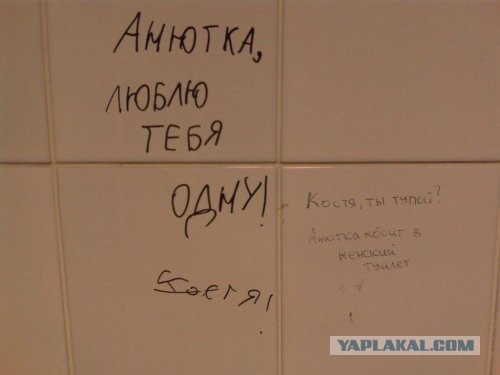 АНЮТКА,
ЛЮБЛЮ
ТЕБЯ
ОДНУ!
Костя!
Костя, ты тупой?
Анютка ходит в
женский
туалет
YAPLAKAL.COM